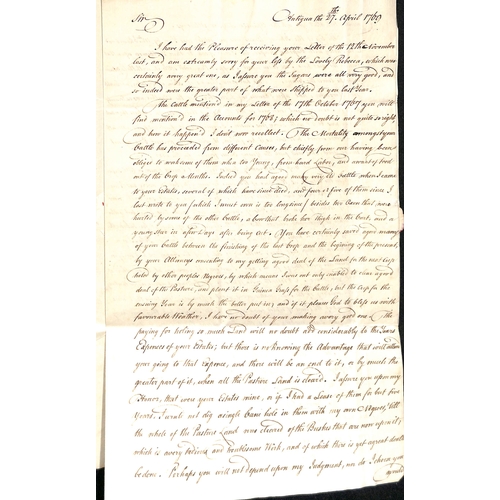 Sir Antigua the 27th April 1769
I have had the Pleasure of receiving your Letter of the 12th November
last, and am extreamly sorry for your loss by the Lovely Rebecca, which was
certainly very great one, as I assure you the Sugars were all very good, and
so indeed were the greater part of what were shipped to you last Year.
The Cattle mention'd in my Letter of the 17th October 1767 you will
find mention'd in the Accounts for 1768; which no doubt is not quite so right
and how it happen'd I don't now recollect. The Mortality amongst your
Cattle has proceeded from different Causes, but chiefly from our having been
obliged to make use of them when too Young, from hard Labor, and
out of the Crop Months. Indeed you had again
to your Estates, several of which have since died, and four or five of them since I
last wrote to you (which I must own is too long time) besides two Oxen that were
hurted by some of the other Cattle, a Cow that broke her thigh in the
young steer in after days after being cut. You have certainly saved a great many
of your Cattle between the finishing of the last Crop and the begining of the present,
by your Attorneys consenting to my getting a good deal of the Land for the next Crop
holed by other peoples Negroes, by which means I was not only enabled to clear a good
deal of the Pasture, and plant it in Guinea Grass for the Cattle, but the Crop for the
ensuing Year is by much the better put in; and if it please God to bless us with
favourable Weather, I have no doubt of your making a very good one. The
paying for holing so much Land will no doubt add considerably to the Years
Expences of your Estates; but there is no knowing the Advantage that will attend
your going to that Expence, and there will be an end to it, or by much the
greater part of it, when all the Pasture Land is cleard. I assure you upon my
Honor, that were your Estates mine, or if I had a Lease of them for but five
Years, I would not dig a single Cane hole in them with my own Negroes, till
the whole of the Pasture Land was cleared of the Bushes that are now upon it;
which is a very tedious and troublesome Work, and of which there is yet a great deal to
be done. Perhaps you will not depend upon my Judgment, nor do I chuse you